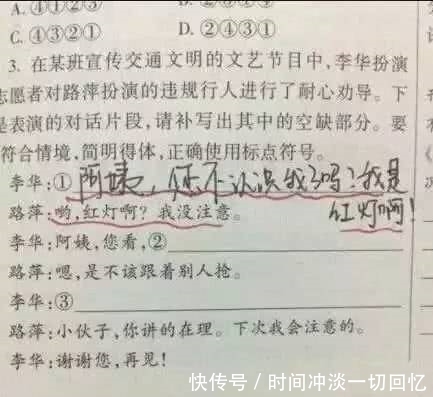 A.④①②③
C.④③②①   D.②④③①
3. 在某班宣传交通文明的文艺节目中,李华扮演
志愿者对路萍扮演的违规行人进行了耐心劝导。下
是表演的对话片段,请补写出其中的空缺部分。要
符合情境,简明得体,正确使用标点符号。
李华:①阿姨,您不认识我了吗?我是
红灯啊!
路萍:哟,红灯啊?我没注意。
李华:阿姨,您看,②
路萍:嗯,是不该跟着别人抢。
李华:③
路萍:小伙子,你讲的在理。下次我会注意的。
李华:谢谢您,再见!
快传号/时间冲淡一切回忆